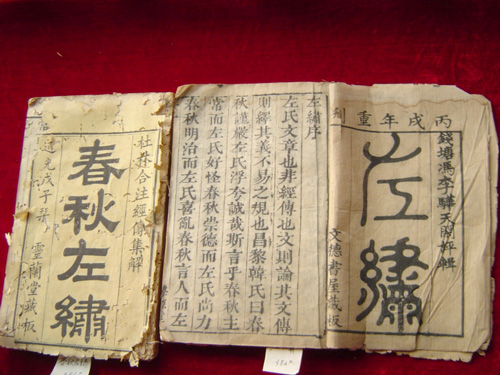 杜林合注經傳集解
春秋左繡
道光戊子
靈蘭堂藏板
丙戌年重
錢塘馮李驊天閑評輯
左繡
文德書屋藏板
左繡序
左氏文章也非經傳也文則論其文傳
則繹其義不易之規也昌黎韓氏曰春
秋謹嚴左氏浮夸誠哉斯言乎春秋主
常而左氏好怪春秋崇德而左氏尚力
春秋明治而左氏喜亂春秋言人而左